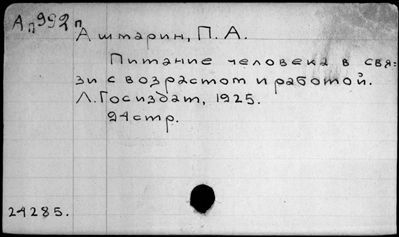 Ап992п
Аштарин, П. А.
Питание человека в свя=
зи с возрастом и работой.
Л. Госиздат, 1925.
24 стр.
24285.